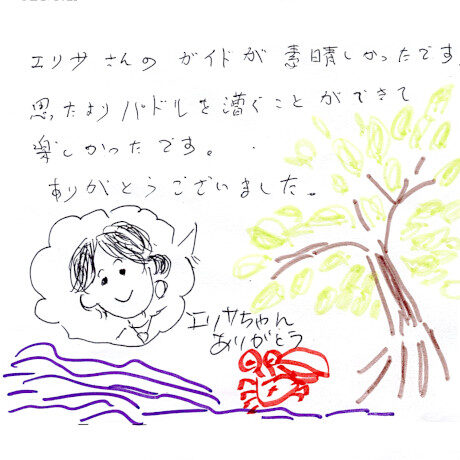 エリサさんの ガイドが 素晴しかったです
思たよりパドルを漕ぐことができて
楽しかったです。
ありがとうございました。
エリサちゃん
ありがとう